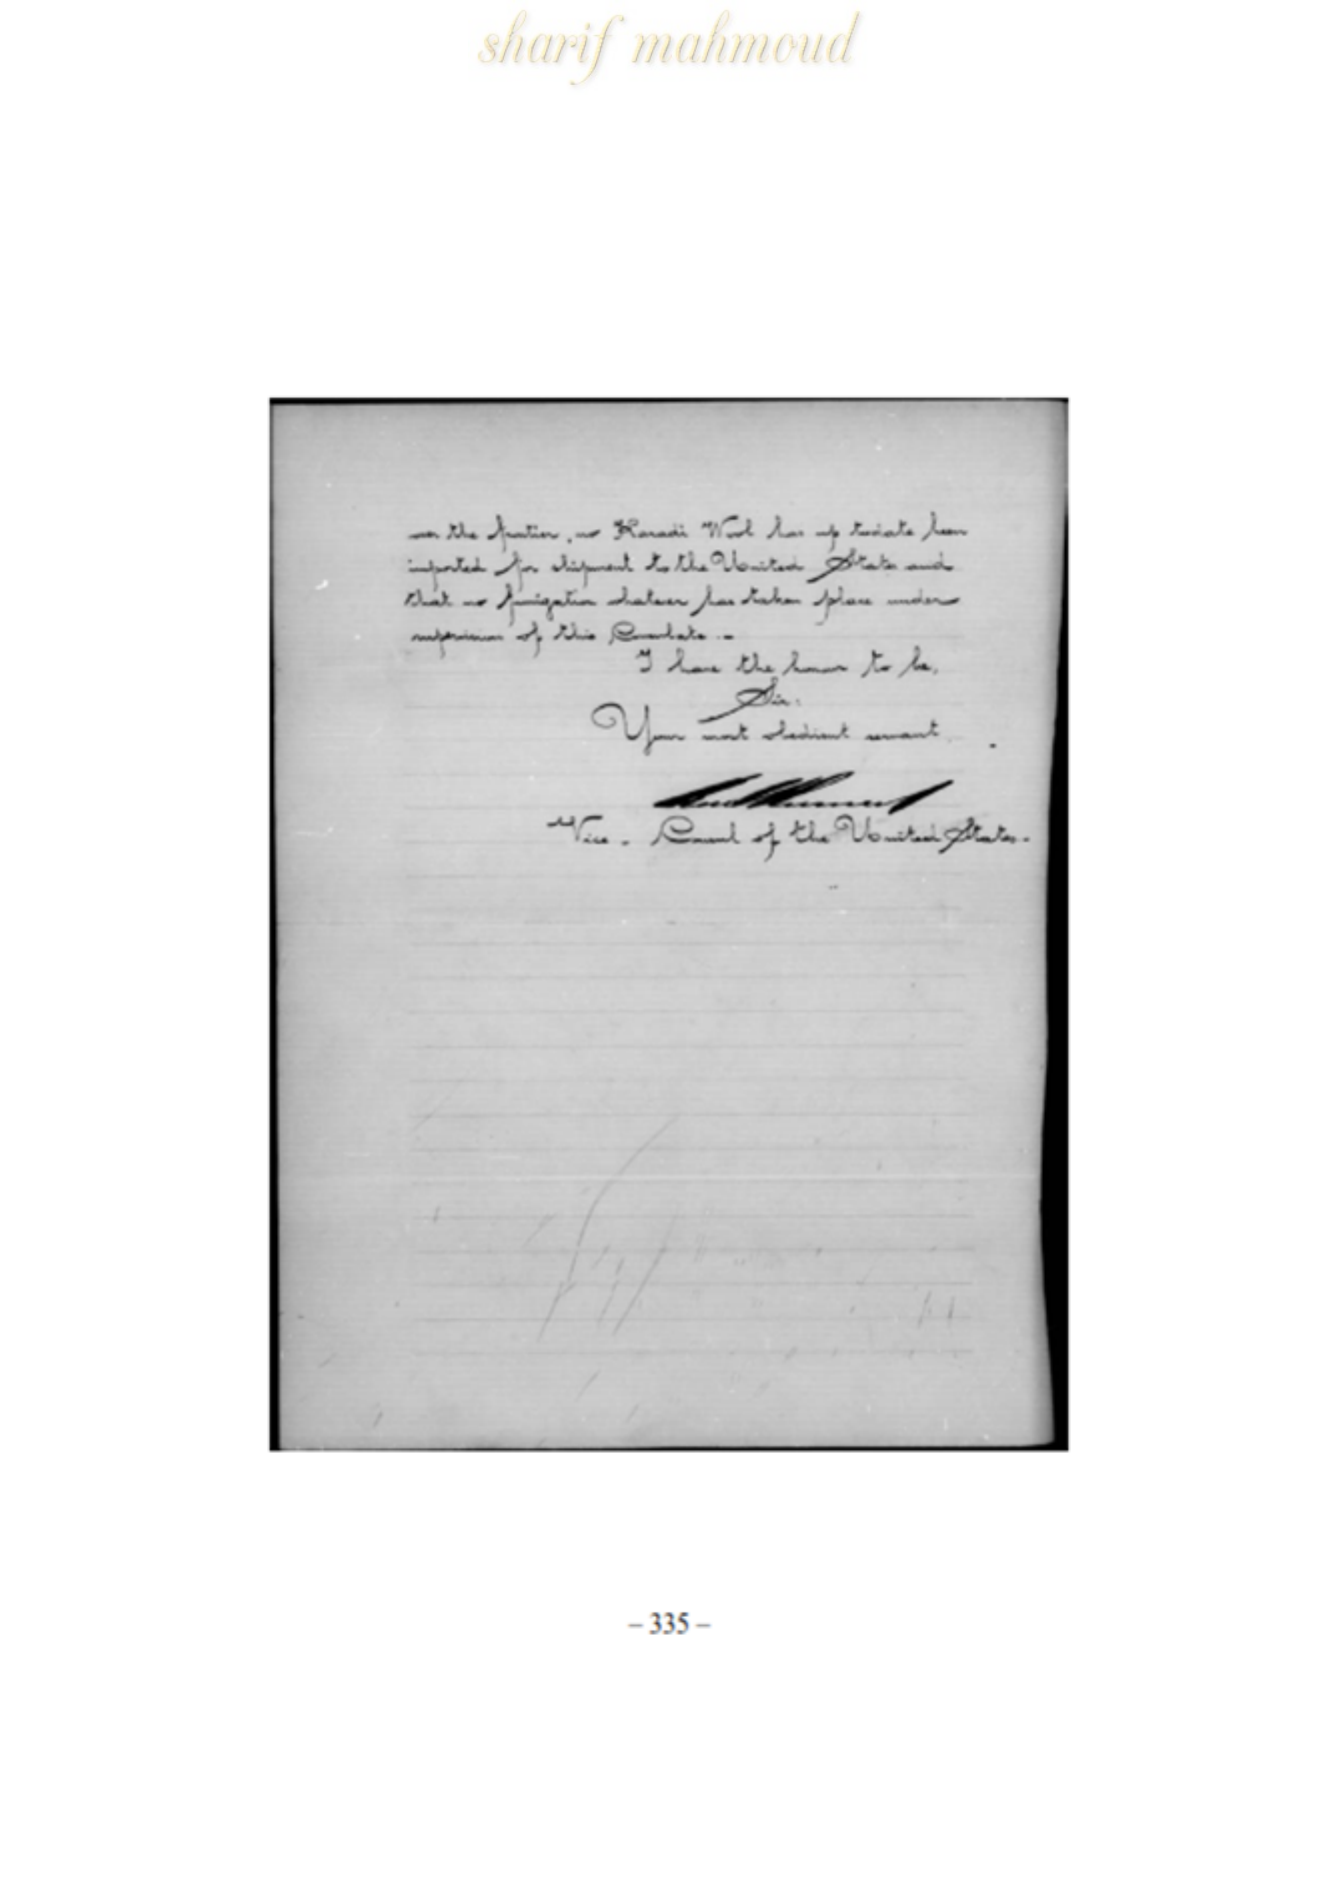 sharif mahmoud
on the frontier, no Karadi Wool has up todate been
imported for shipment to the United States and
that no fumigation whatever has taken place under
supervision of this Consulate.-
I have the honor to be,
Sir:
Your most obedient servant
Vice - Consul of the United States.-
– 335 –